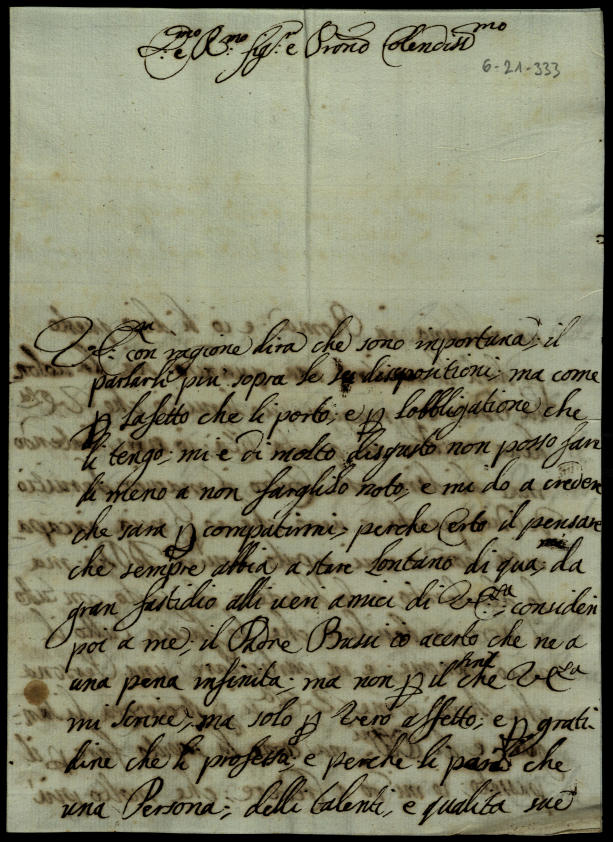 Ill.mo e R.mo Sig.r e Pron Colendiss.mo
6-21-333
V.E. con ragione dira che sono inportuna; il
parlarli più sopra le sue dispositioni; ma come
p lafetto che li porto; e p lobbligatione che
li tengo; mi e di molto disgusto non posso fare
di meno a non farglielo noto, e mi do a credere
che sara p compatirmi; perche certo il pensare
che sempre abbia a stare lontano di qua, da
gran fastidio alli veri amici di V.E.; consideri
poi a me; il Padre Bussi io acerto che ne a
una pena infinita; ma non p il fine che V.E.
mi scrive; ma solo p vero affetto; e p grati-
dine che li professa; e perche li pare che
una Persona; delli talenti, e qualita sue